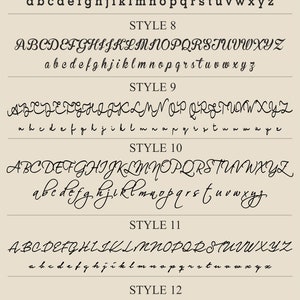 abcdefghijklmnopqrstuvwxyz
STYLE 8
ABCDEFGHIJKLMNOPQRSTUVWXYZ
abcdefghijklmnopqrstuvwxyz
STYLE 9
ABCDEFGHIJKLMNOPQRSTUVWXYZ
abcdefghijklmnopqrstuvwxyz
STYLE 10
ABCDEFGHIJKLMNOPQRSTUVWXYZ
abcdefghijklmnopqrstuvwxyz
STYLE 11
ABCDEFGHIJKLMNOPQRSTUVWXYZ
abcdefghijklmnopqrstuvwxyz
STYLE 12